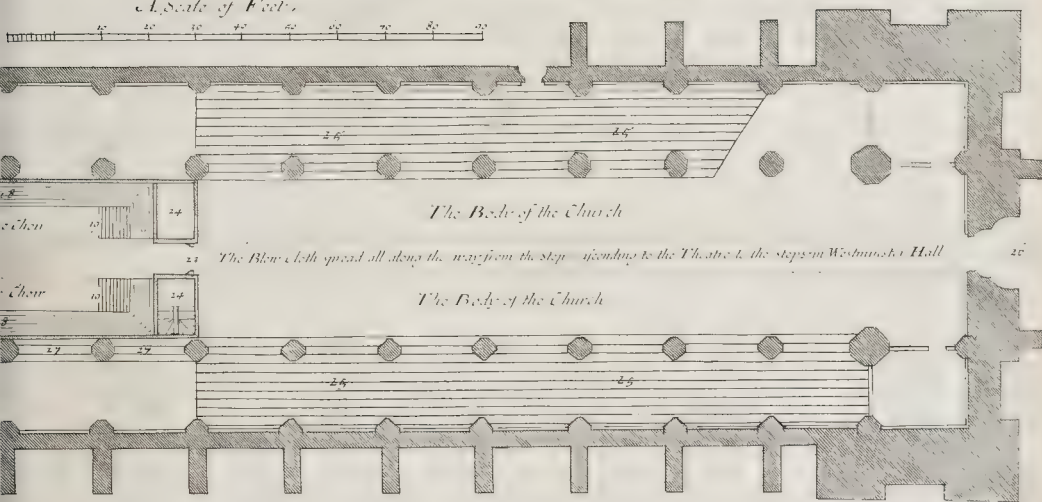 A Scale of Feet.
10 20 30 40 50 60 70 80 90
25 25
18
24
e Choir
10
The Body of the Church
The Blew cloth spread all along the way from the step scending to the Theatre to the steps in Westminster Hall
Choir
10
24
The Body of the Church
8
27 27
25 25